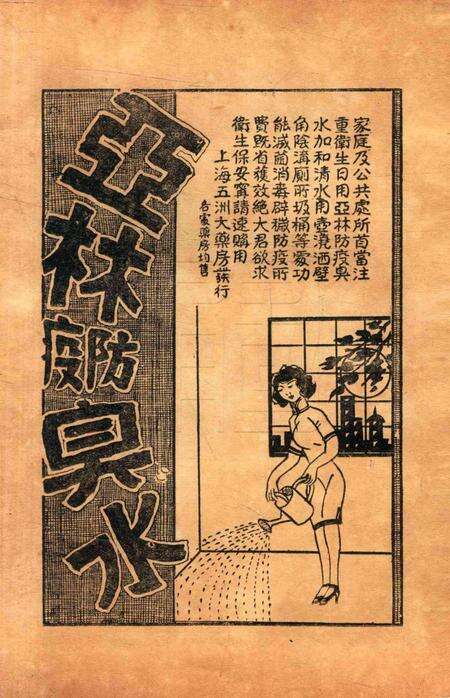 家庭及公共處所首當注
重衛生日用亞林防疫臭
水加和清水用壺澆洒壁
角陰溝厠所圾桶等處功
能滅菌消毒辟穢防疫所
費既省獲效絕大君欲求
衛生保安寧請速購用
上海五洲大藥房謹行
各處藥房均售
亞林防疫臭水